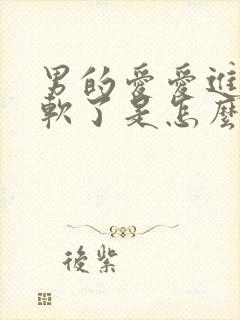 男的爱爱進
軟了是怎麼
後紫